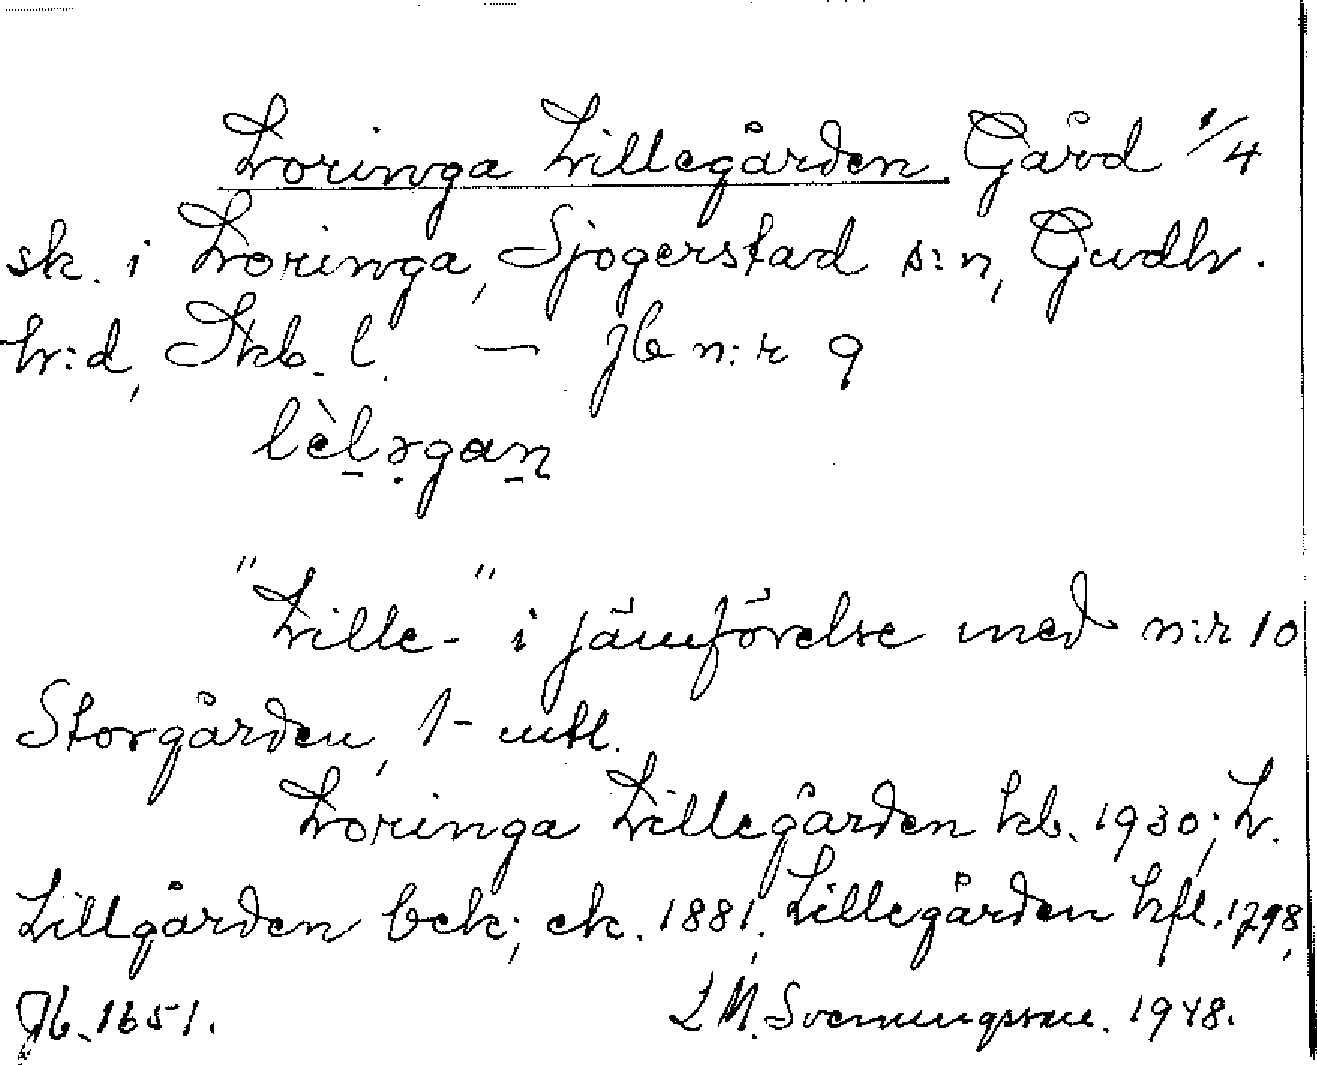 Loringa Lillegården Gård 1/4
sk. i Loringa, Sjogerstad s:n, Gudh.
h:d, Skb. l. — Jb n:r 9
lèl̠ə̣gan̠
"Lille-" i jämförelse med n:r 10
Storgården, 1- mtl.
Loringa Lillegården kb. 1930; L.
Lillgården bek; ek. 1881; Lillegården hfl. 1798,
Jb. 1651. L M. Svenungsson. 1948.